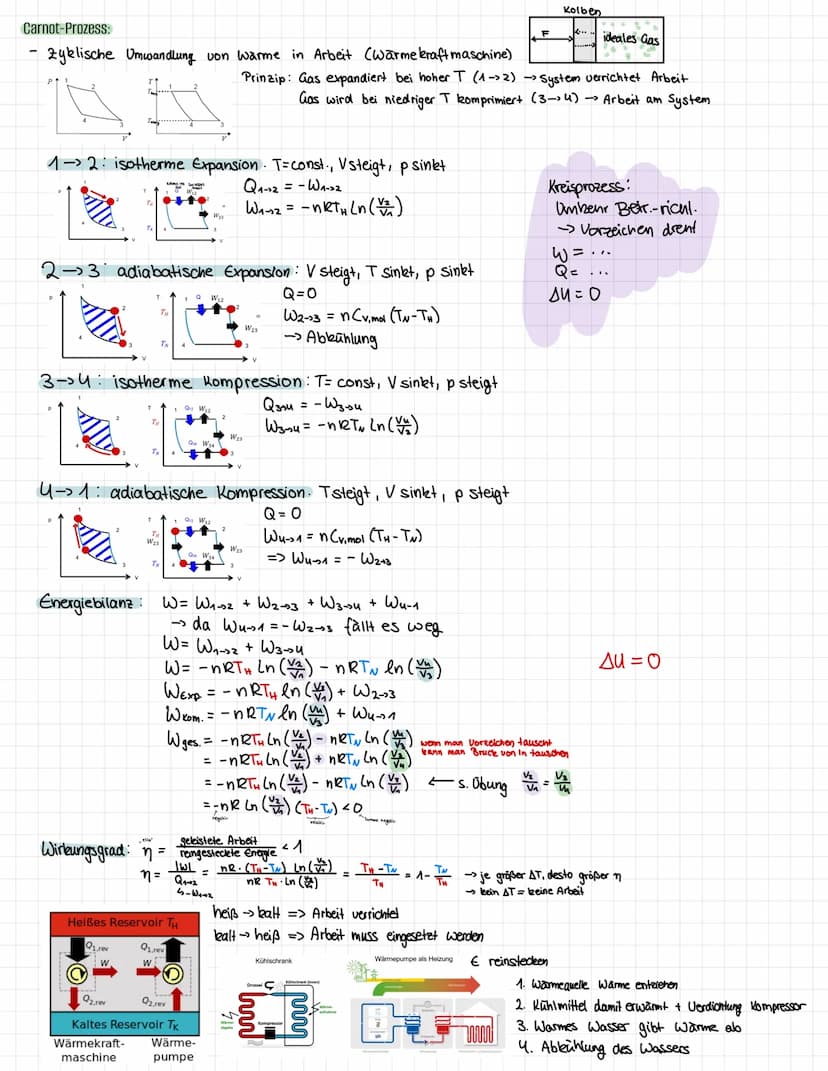 Kolben
Carnot-Prozess:
F
ideales Gas
- zyklische Umwandlung von Wärme in Arbeit (Wärmekraftmaschine)
Prinzip: Gas expandiert bei hoher T (1→2) → System verrichtet Arbeit
Gas wird bei niedriger T komprimiert (3→4) → Arbeit am System
1→2: isotherme Expansion. T=const., V steigt, p sinkt
Q₁→₂ = -W₁→₂
W₁→₂ = -nRT_H Ln(V₂/V₁)
Kreisprozess:
Umkehr Betr.-richt.
→ Vorzeichen dreht
W = ...
Q = ...
ΔU = 0
2→3 adiabatische Expansion: V steigt, T sinkt, p sinkt
Q=0
W₂→₃ = nCv,mol (T_N-T_H)
→ Abkühlung
3→4: isotherme Kompression: T= const, V sinkt, p steigt
Q₃→₄ = -W₃→₄
W₃→₄ = -nRT_N Ln(V₄/V₃)
4→1: adiabatische Kompression. T steigt, V sinkt, p steigt
Q = 0
W₄→₁ = nCv,mol (T_H-T_N)
=> W₄→₁ = - W₂→₃
Energiebilanz: W= W₁→₂ + W₂→₃ + W₃→₄ + W₄-₁
→ da W₄→₁ = -W₂→₃ fällt es weg
W= W₁→₂ + W₃→₄
W= -nRT_H Ln(V₂/V₁) - nRT_N ln(V₄/V₃)
ΔU = 0
W_Exp = -nRT_H ln(V₂/V₁) + W₂→₃
W_kom. = -nRT_N ln(V₄/V₃) + W₄→₁
W_ges. = -nRT_H Ln(V₂/V₁) - nRT_N Ln(V₄/V₃) wenn man Vorzeichen tauscht
= -nRT_H Ln(V₂/V₁) + nRT_N Ln(V₃/V₄) kann man Bruck von ln tauschen
= -nRT_H Ln(V₂/V₁) - nRT_N Ln(V₃/V₄) ← s. Übung V₂/V₁ = V₃/V₄
= -nR Ln(V₂/V₁) (T_H-T_N) < 0
Wirkungsgrad: η = geleistete Arbeit / reingesteckte Energie < 1
η = |W| / Q₁→₂ = nR·(T_H-T_N) Ln(V₂/V₁) / nR T_H·Ln(V₂/V₁) = T_H-T_N / T_H = 1- T_N/T_H → je größer ΔT, desto größer η
→ kein ΔT = keine Arbeit
heiß → kalt => Arbeit verrichtet
kalt → heiß => Arbeit muss eingesetzt werden
Heißes Reservoir T_H
Q₁,rev Q₁,rev
W W
Q₂,rev Q₂,rev
Kaltes Reservoir T_K
Wärmekraft-maschine
Wärme-pumpe
Kühlschrank
Drossel
Kompressor
Wärmepumpe als Heizung
€ reinstecken
1. Wärmequelle Wärme entziehen
2. Kühlmittel damit erwärmt + Verdichtung Kompressor
3. Warmes Wasser gibt Wärme ab
4. Abkühlung des Wassers